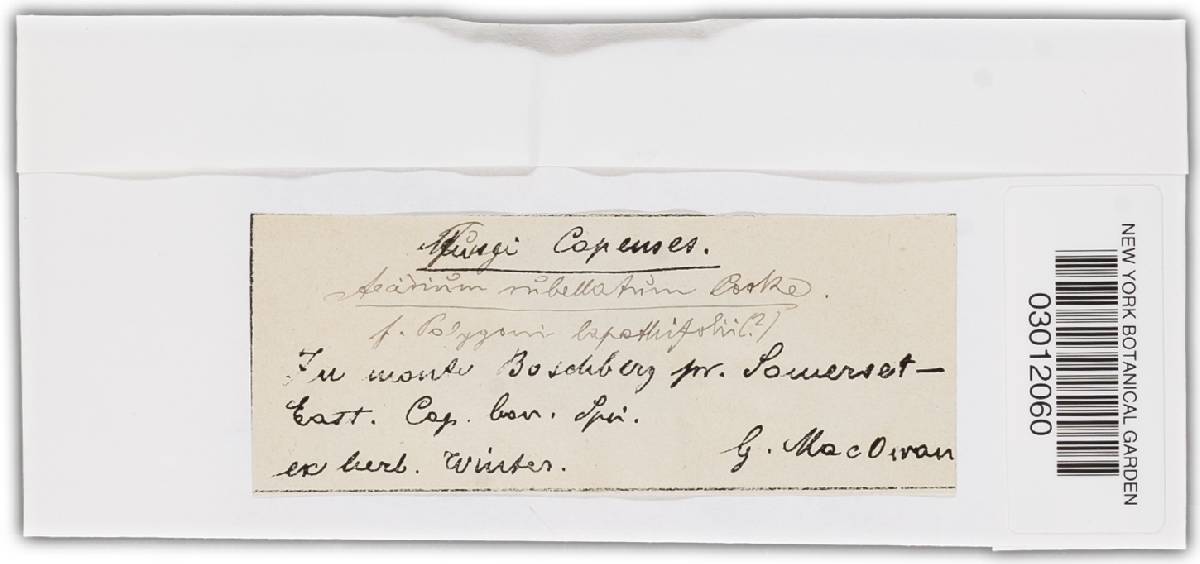 Fungi Capenses.
Aecidium rubellatum Cooke.
f. Polygoni lapathifolii(?)
In monte Boschberg pr. Somerset-
East. Cap. bon. Spei.
ex herb. Winter.
G. MacOwan
NEW YORK BOTANICAL GARDEN
03012060